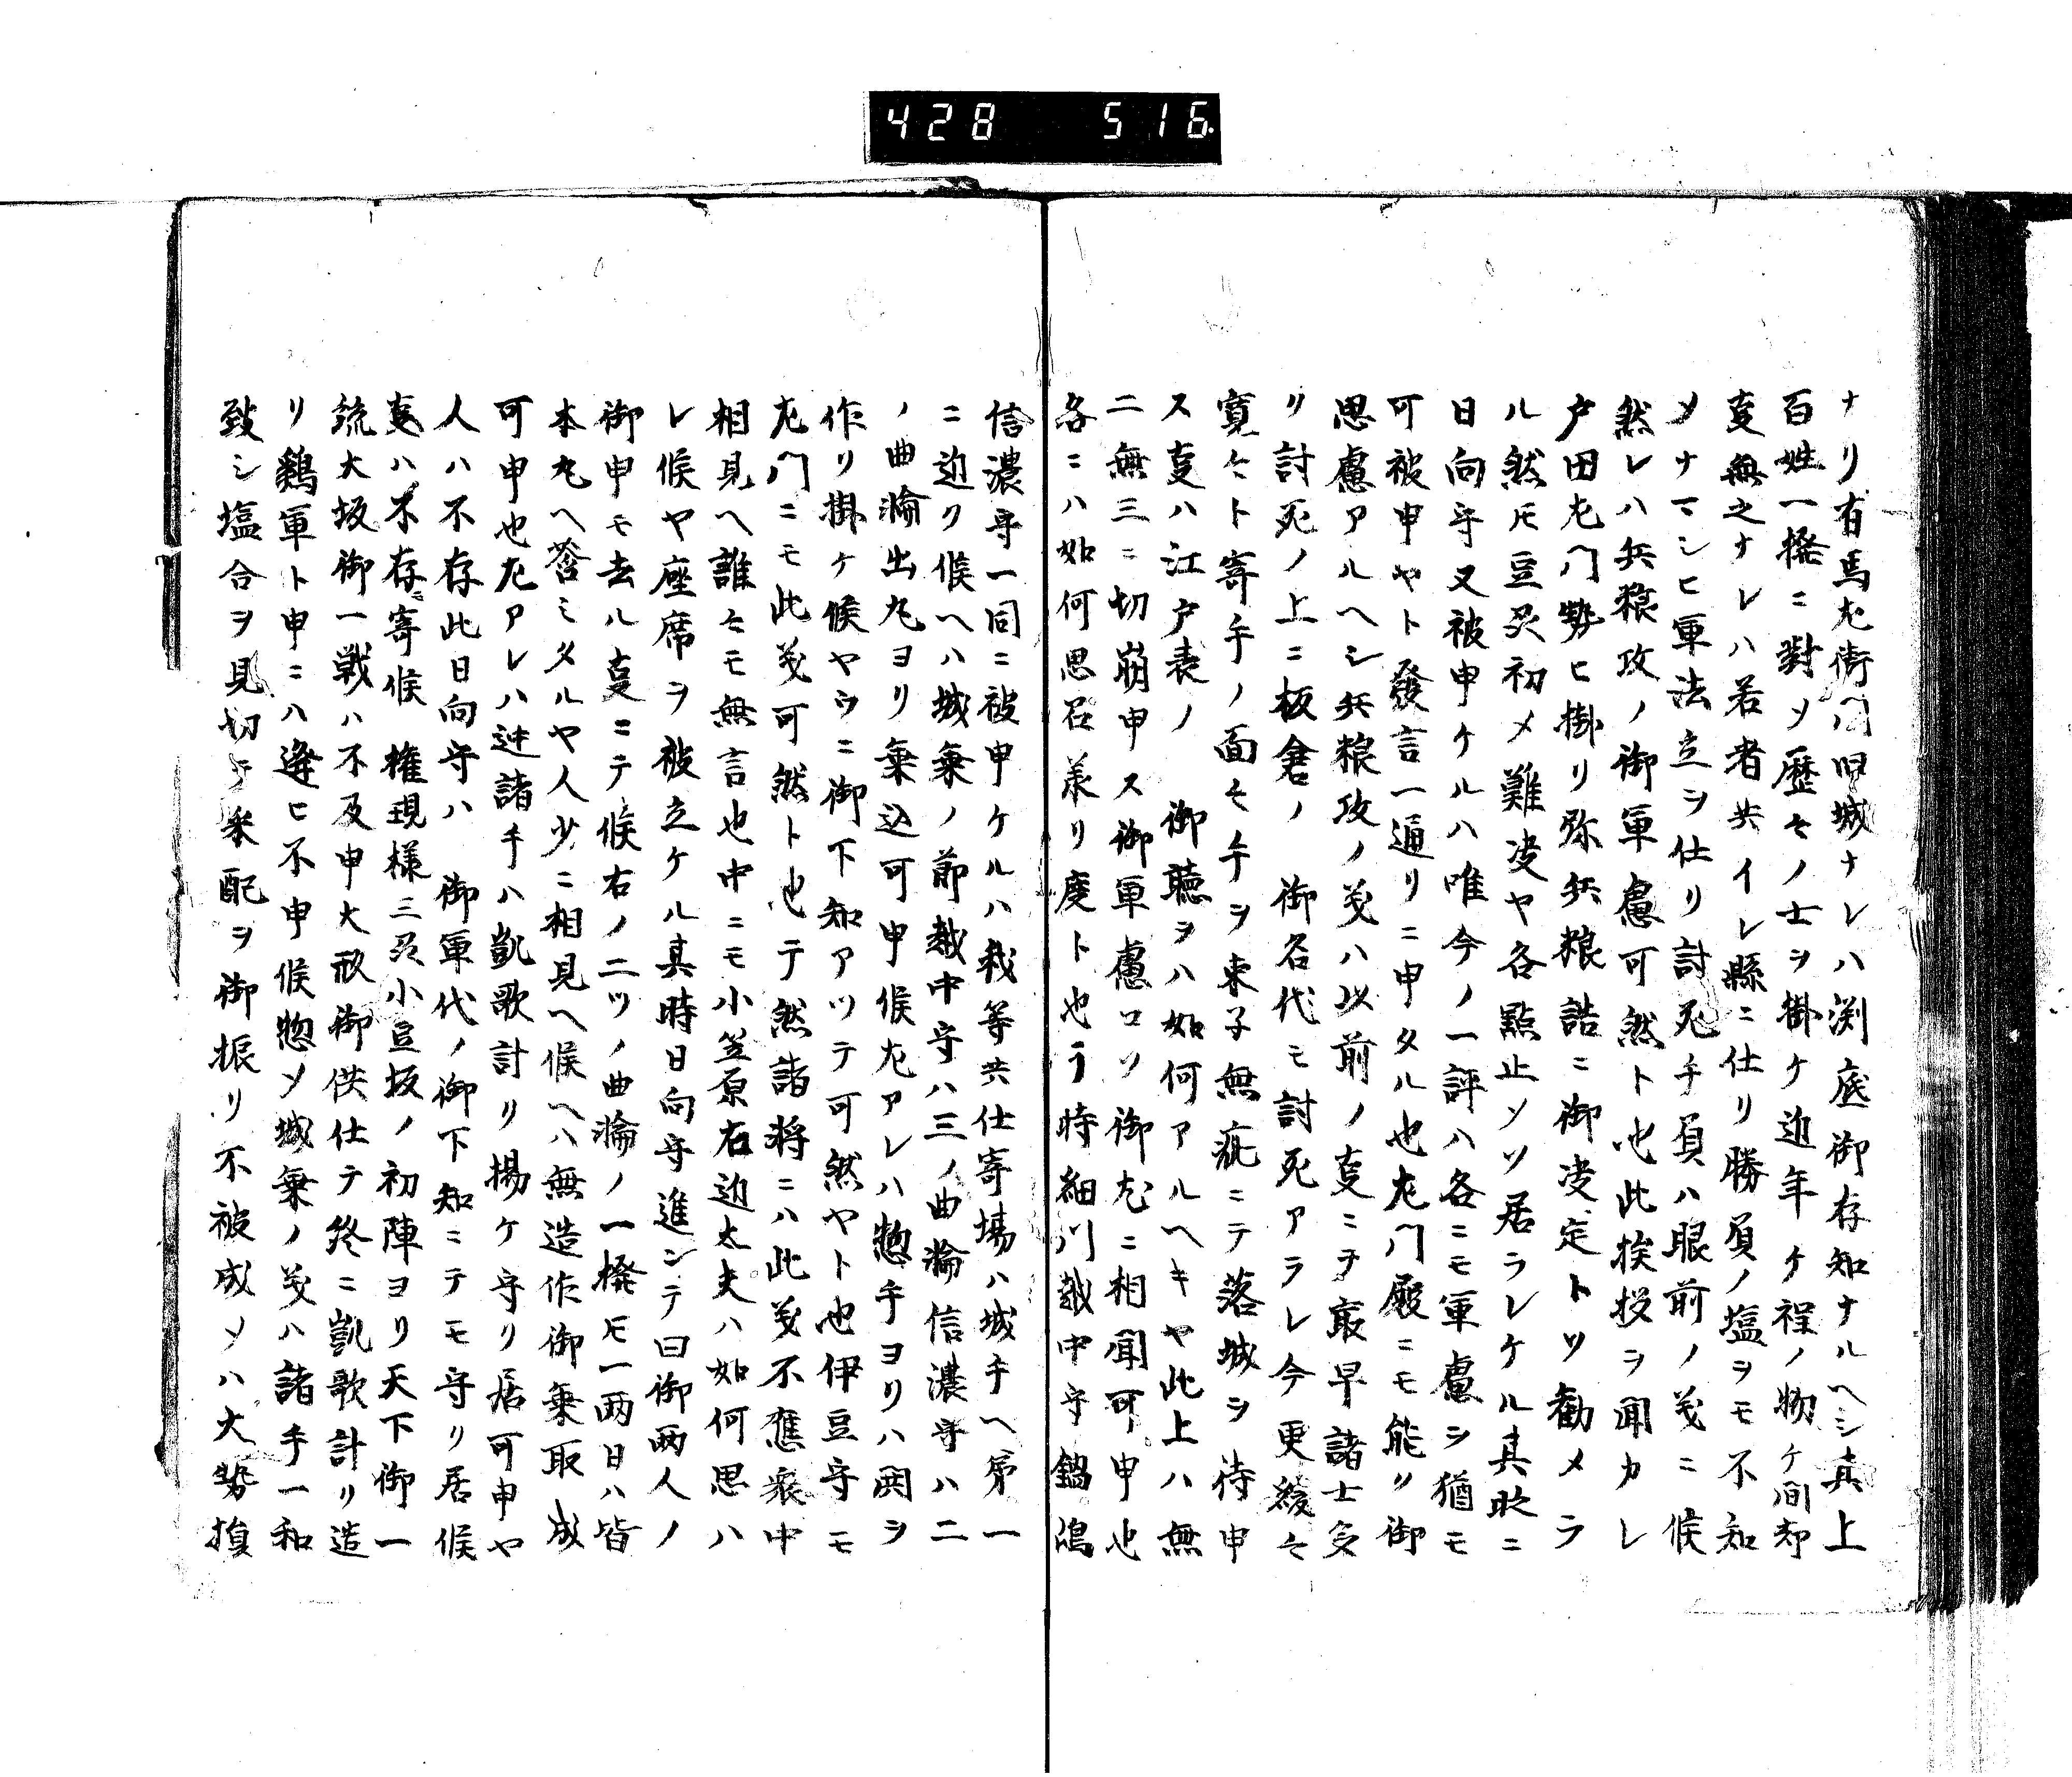 428 516
ナリ有馬左衛門旧城ナレハ渕底御存知ナルヘシ真上
百姓一揆ニ對シ歴々ノ士ヲ掛ケ近年ケ程ノ物ケ間却
叓無之ナレハ若者共イレ縣ニ仕リ勝負ノ塩ヲモ不知
メナマシヒ軍法立ヲ仕リ討死手負ハ眼前ノ義ニ候
然レハ兵粮攻ノ御軍慮可然ト也此挨拶ヲ聞カレ
戸田左門勢ヒ掛リ弥兵粮詰ニ御决定トソ勧メラ
ル然モ豆刕初メ難决ヤ各黙止ソソ居ラレケル其時ニ
日向守又被申ケルハ唯今ノ一評ハ各ニモ軍慮シ猶モ
可被申ヤト發言一通リニ申タル也左門殿ニモ能ク御
思慮アルヘシ兵粮攻ノ義ハ以前ノ叓ニヲ最早諸士多
リ討死ノ上ニ板倉ノ 御名代モ討死アラレ今更緩々
寛々ト寄手ノ面々手ヲ束子無疵ニテ落城ヲ待申
ス叓ハ江戸表ノ 御聴ヲハ如何アルヘキヤ此上ハ無
二無三ニ切崩申ス御軍慮コソ御尤ニ相聞可申也
各ニハ如何思召承リ度ト也ラ時細川越中守鍋嶋
信濃守一同ニ被申ケルハ我等共仕寄場ハ城手ヘ第一
ニ近ク候ヘハ城乗ノ節越中守ハ三ノ曲輪信濃守ハ二
ノ曲輪出丸ヨリ乗込可申候左アレハ惣手ヨリハ閧ヲ
作リ掛ケ候ヤウニ御下知アツテ可然ヤト也伊豆守モ
左門ニモ此義可然ト也テ然諸将ニハ此義不應衆中
相見ヘ誰々モ無言也中ニモ小笠原右近太夫ハ如何思ハ
レ候ヤ座席ヲ被立ケル其時日向守進ンテ曰御兩人ノ
御申モ去ル叓ニテ候右ノ二ツノ曲輪ノ一揆モ一兩日ハ皆
本丸ヘ莟ミタルヤ人少ニ相見ヘ候ヘハ無造作御乗取成
可申也左アレハ迚諸手ハ凱歌計リ揚ケ守リ居可申ヤ
人ハ不存此日向守ハ 御軍代ノ御下知ニテモ守リ居候
叓ハ不存寄候 権現様三刕小豆坂ノ初陣ヨリ天下御一
統大坂御一戦ハ不及申大形御供仕テ終ニ凱歌計リ造
リ鶏軍ト申ニハ逢ヒ不申候惣シ城乗ノ義ハ諸手一和
致シ塩合ヲ見切テ采配ヲ御振リ不被成ソハ大勢損